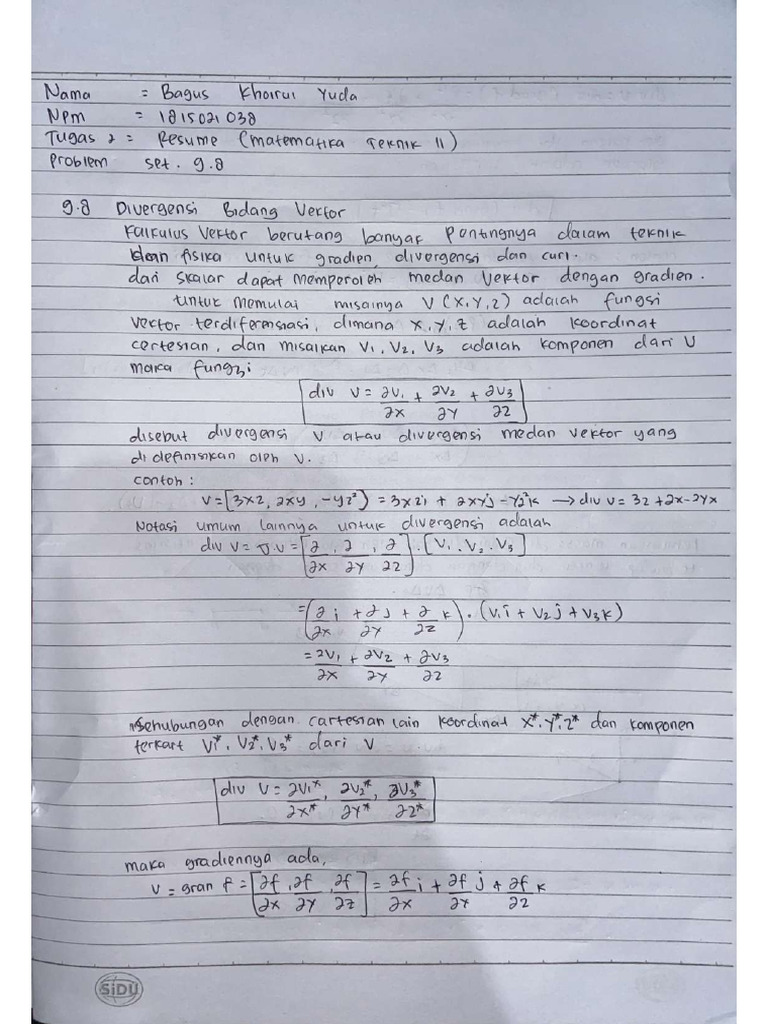 Nama = Bagus Khoirul Yuda
NPM = 1815021038
Tugas 2 = Resume (Matematika Teknik II)
Problem set. 9.8
9.8 Divergensi Bidang Vektor
Kalkulus Vektor berutang banyak pentingnya dalam teknik
dan fisika untuk gradien, divergensi dan curl.
dari skalar dapat memperoleh medan vektor dengan gradien.
untuk memulai misalnya V (x, y, z) adalah fungsi
vector terdiferensiasi, dimana x, y, z adalah koordinat
certesian, dan misalkan V₁, V₂, V₃ adalah komponen dari V
maka fungsi
div V = ∂V₁/∂x + ∂V₂/∂y + ∂V₃/∂z
disebut divergensi V atau divergensi medan vektor yang
di definisikan oleh V.
contoh :
V = [3xz, 2xy, -yz²) = 3xzi + 2xyj - yz²k → div V = 3z + 2x - 2yx
Notasi umum lainnya untuk divergensi adalah
div V = ∇.V = [∂/∂x, ∂/∂y, ∂/∂z] . [V₁, V₂, V₃]
= (∂/∂x i + ∂/∂y j + ∂/∂z k) . (V₁i + V₂j + V₃k)
= ∂V₁/∂x + ∂V₂/∂y + ∂V₃/∂z
Sehubungan dengan cartesian lain koordinat x*, y*, z* dan komponen
terkait V₁*, V₂*, V₃* dari V
div V = ∂V₁*/∂x*, ∂V₂*/∂y*, ∂V₃*/∂z*
maka gradiennya ada,
V = gran f = [∂f/∂x, ∂f/∂y, ∂f/∂z] = ∂f/∂x i + ∂f/∂y j + ∂f/∂z k
SiDU